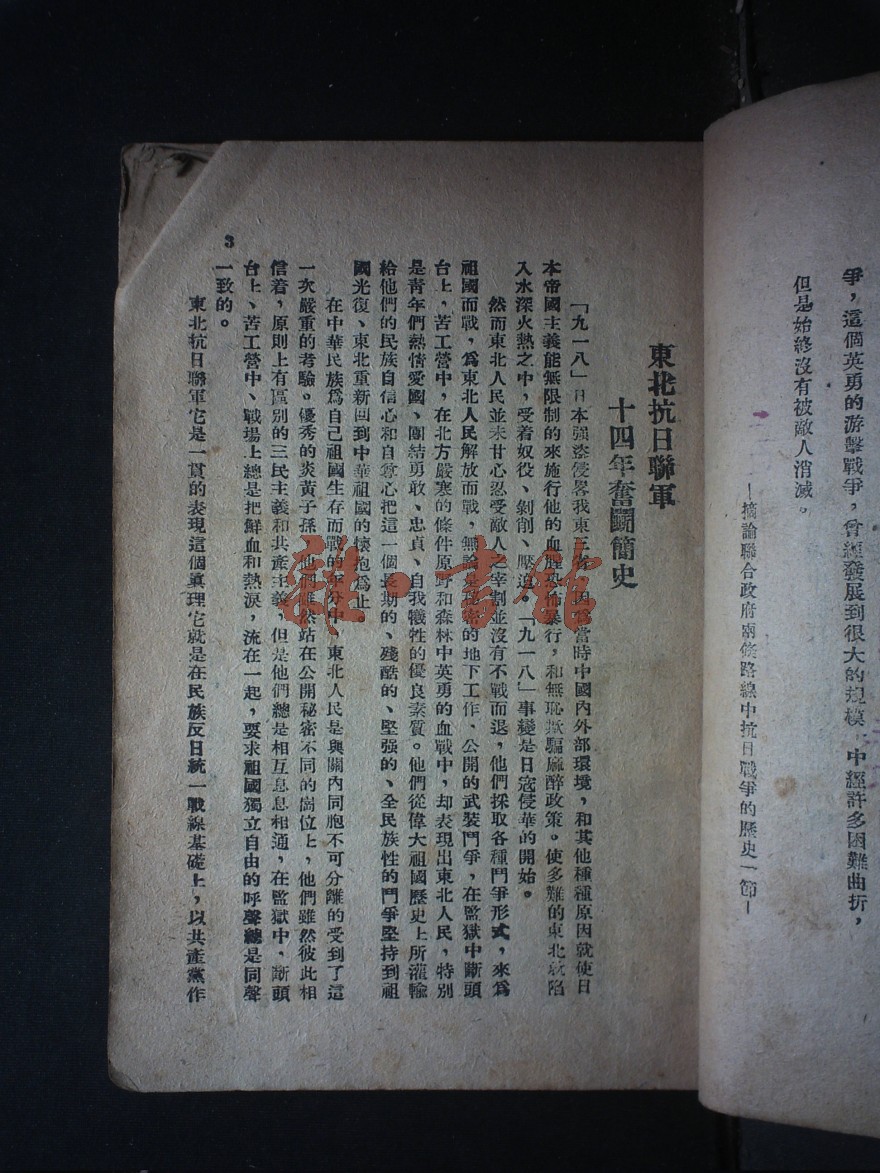 爭，這個英勇的游擊戰爭，曾經發展到很大的規模，中經許多困難曲折，
但是始終沒有被敵人消滅。
—摘論聯合政府兩條路線中抗日戰爭的歷史一節—
東北抗日聯軍
十四年奮鬪簡史
「九一八」日本強盜侵畧我東三省，因為當時中國內外部環境，和其他種種原因就使日
本帝國主義能無限制的來施行他的血腥恐怖暴行，和無恥欺騙麻醉政策。使多難的東北就陷
入水深火熱之中，受着奴役、剝削、壓迫。「九一八」事變是日寇侵華的開始。
然而東北人民並未甘心忍受敵人之宰割並沒有不戰而退，他們採取各種鬥爭形式，來為
祖國而戰，為東北人民解放而戰，無論是秘密的地下工作、公開的武裝鬥爭，在監獄中斷頭
台上，苦工營中，在北方嚴寒的條件原野和森林中英勇的血戰中，却表現出東北人民，特別
是青年們熱情愛國、團結勇敢、忠貞、自我犧牲的優良素質。他們從偉大祖國歷史上所灌輸
給他們的民族自信心和自尊心把這一個長期的、殘酷的、堅强的、全民族性的鬥爭堅持到祖
國光復、東北重新回到中華祖國的懷抱為止。
在中華民族為自己祖國生存而戰的年分中、東北人民是與關內同胞不可分離的受到了這
一次嚴重的考驗。優秀的炎黃子孫，他們雖然站在公開秘密不同的崗位上，他們雖然彼此相
信着，原則上有區別的三民主義和共產主義，但是他們總是相互息息相通，在監獄中，斷頭
台上、苦工營中、戰場上總是把鮮血和熱淚，流在一起，要求祖國獨立自由的呼聲總是同聲
一致的。
東北抗日聯軍它是一貫的表現這個真理它就是在民族反日統一戰線基礎上，以共產黨作
3
雜·書館